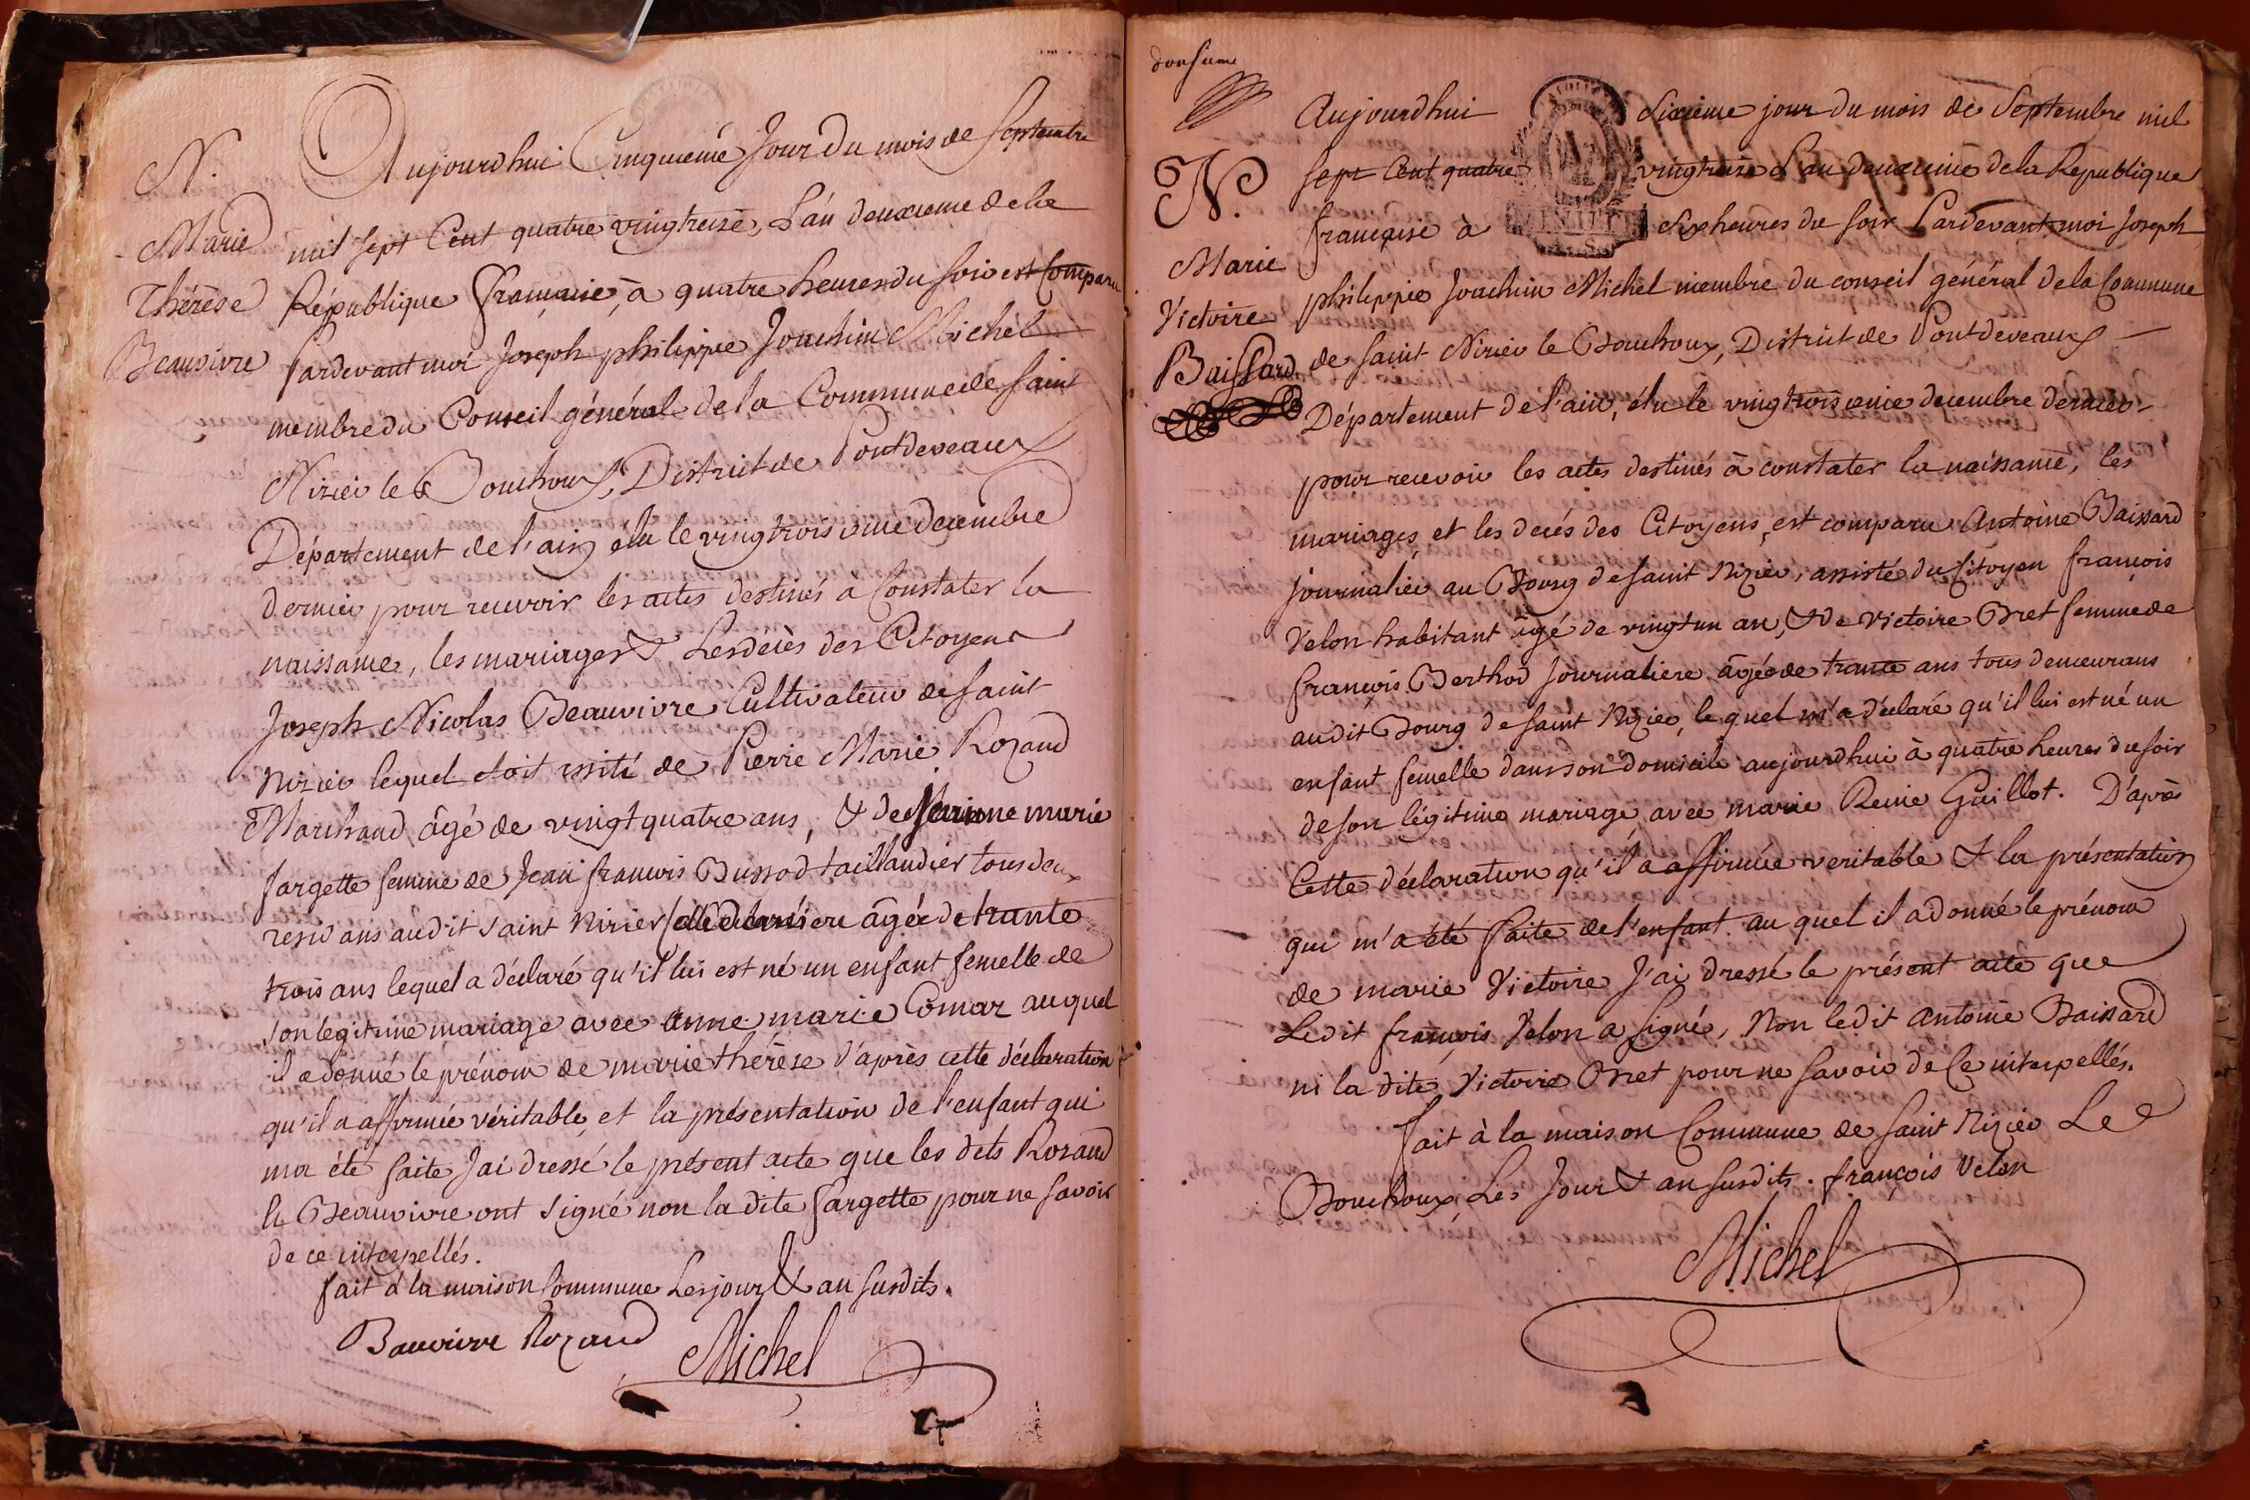 N.
Marie
Thérèse
Beauvivre
Aujourdhui Cinquième Jour du mois de Septembre
mil sept Cent quatre vingt treize, L'an deuxieme de la
République française, à quatre heures du soir est Comparu
Pardevant moi Joseph philippe Joachim Michel
membre du Conseil général de la Commune de Saint
Nizier le Bouchoux, District de Pontdevaux
Département de l'ain élu le vingt trois eme decembre
dernier pour recevoir les actes destinés à Constater la
naissance, les mariages & Les décès des Citoyens
Joseph Nicolas Beauvivre Cultivateur de saint
Nizier lequel etoit assité de Pierre Marie Rozand
Marchand âgé de vingt quatre ans, & de marie
fargette femme de Jean françois Bussod taillandier tous deux
residans audit saint Nizier cette derniere âgée de trante
trois ans lequel a déclaré qu'il lui est né un enfant femelle de
son legitime mariage avec anne marie Comar auquel
il a donné le prénom de marie thérèse d'après cette déclaration
qu'il a affirmée véritable et la présentation de l'enfant qui
ma été faite J'ai dressé le présent acte que les dits Rozand
& Beauvivre ont signé non la dite fargette pour ne savoir
de ce interpellés.
fait à la maison Commune Les jour & an susdits.
Bauvivre Rozand Michel
N.
Marie
Victoire
Baissard
Aujourdhui Sixieme jour du mois de Septembre mil
sept Cent quatre vingt treize L'an deuxieme de la Republique
française à Six heures du soir Pardevant moi Joseph
philippe Joachim Michel membre du conseil général de la Commune
de saint Nizier le Bouchoux, District de Pontdevaux
Département de l'ain, élu le vingt trois eme decembre dernier
pour recevoir les actes destinés à constater la naissance, les
mariages et les decés des Citoyens, est comparu Antoine Baissard
journalier au Bourg de saint Nizier, assisté du Citoyen françois
Velon habitant âgé de vingt un an, & de Victoire Bret femme de
françois Berthod Journaliere âgée de trante ans tous demeurans
audit Bourg de saint Nizier, lequel m'a déclaré qu'il lui est né un
enfant femelle dans son domicile aujourdhui à quatre heures du soir
de son légitime mariage avec marie Reine Guillot. D'après
Cette déclaration qu'il a affirmée veritable & la présentation
qui m'a été faite de l'enfant auquel il a donné le prénom
de marie Victoire J'ai dressé le présent acte que
Ledit françois Velon a signé, Non ledit antoine Baissard
ni la dite Victoire Bret pour ne savoir de Ce interpellés.
fait à la maison Commune de saint Nizier Le
Bouchoux, Les Jour & an susdits. françois Velon
Michel